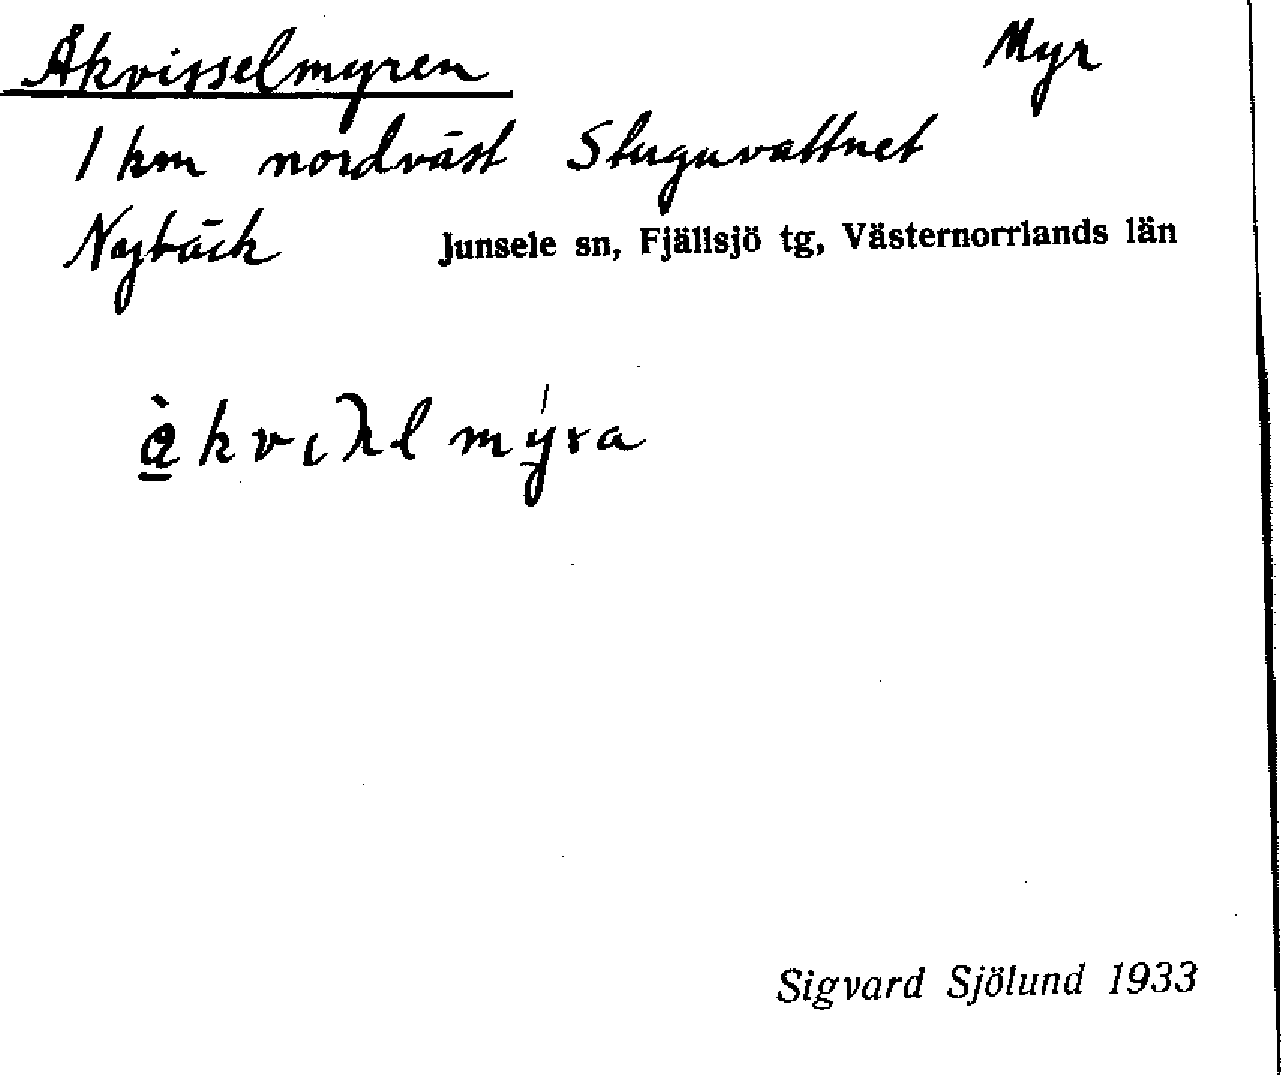 Åkvisselmyren Myr
1 km nordväst Stuguvattnet
Nojbäck Junsele sn, Fjällsjö tg, Västernorrlands län
Sigvard Sjölund 1933